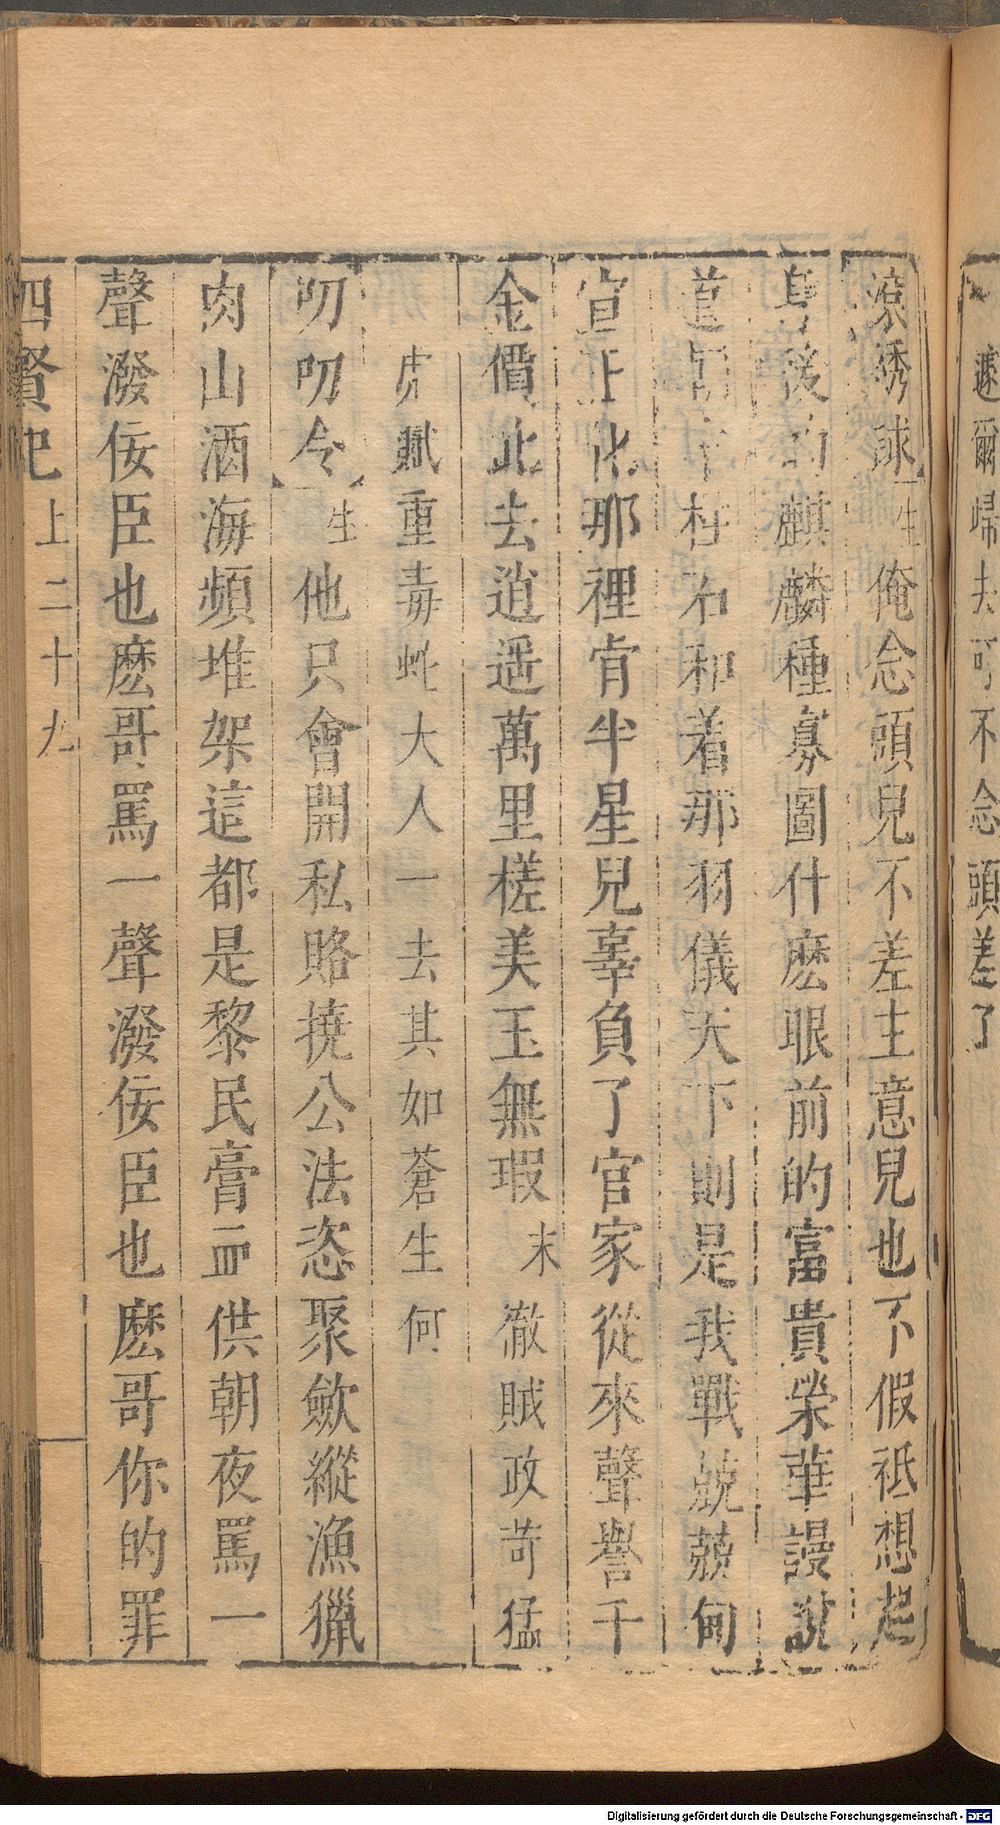 遽爾歸去可不念頭差了
滾綉球生俺念頭兒不差主意兒也不假祗想起
身後的麒麟種募圖什麽眼前的富貴榮華謾說
道 杜 和着那羽儀天下則是我戰兢兢甸
宣上化那裡肯半星兒辜負了官家從來聲譽千
金價此去逍遥萬里槎美玉無瑕末徹賊政苛猛
虎賦重毒蛇大人一去其如蒼生何
叨叨令生他只會開私賂撓公法恣聚斂縱漁獵
肉山酒海頻堆架這都是黎民膏血供朝夜罵一
聲潑佞臣也麽哥罵一聲潑佞臣也麽哥你的罪
四賢記上二十九
Digitalisierung gefördert durch die Deutsche Forschungsgemeinschaft - DFG